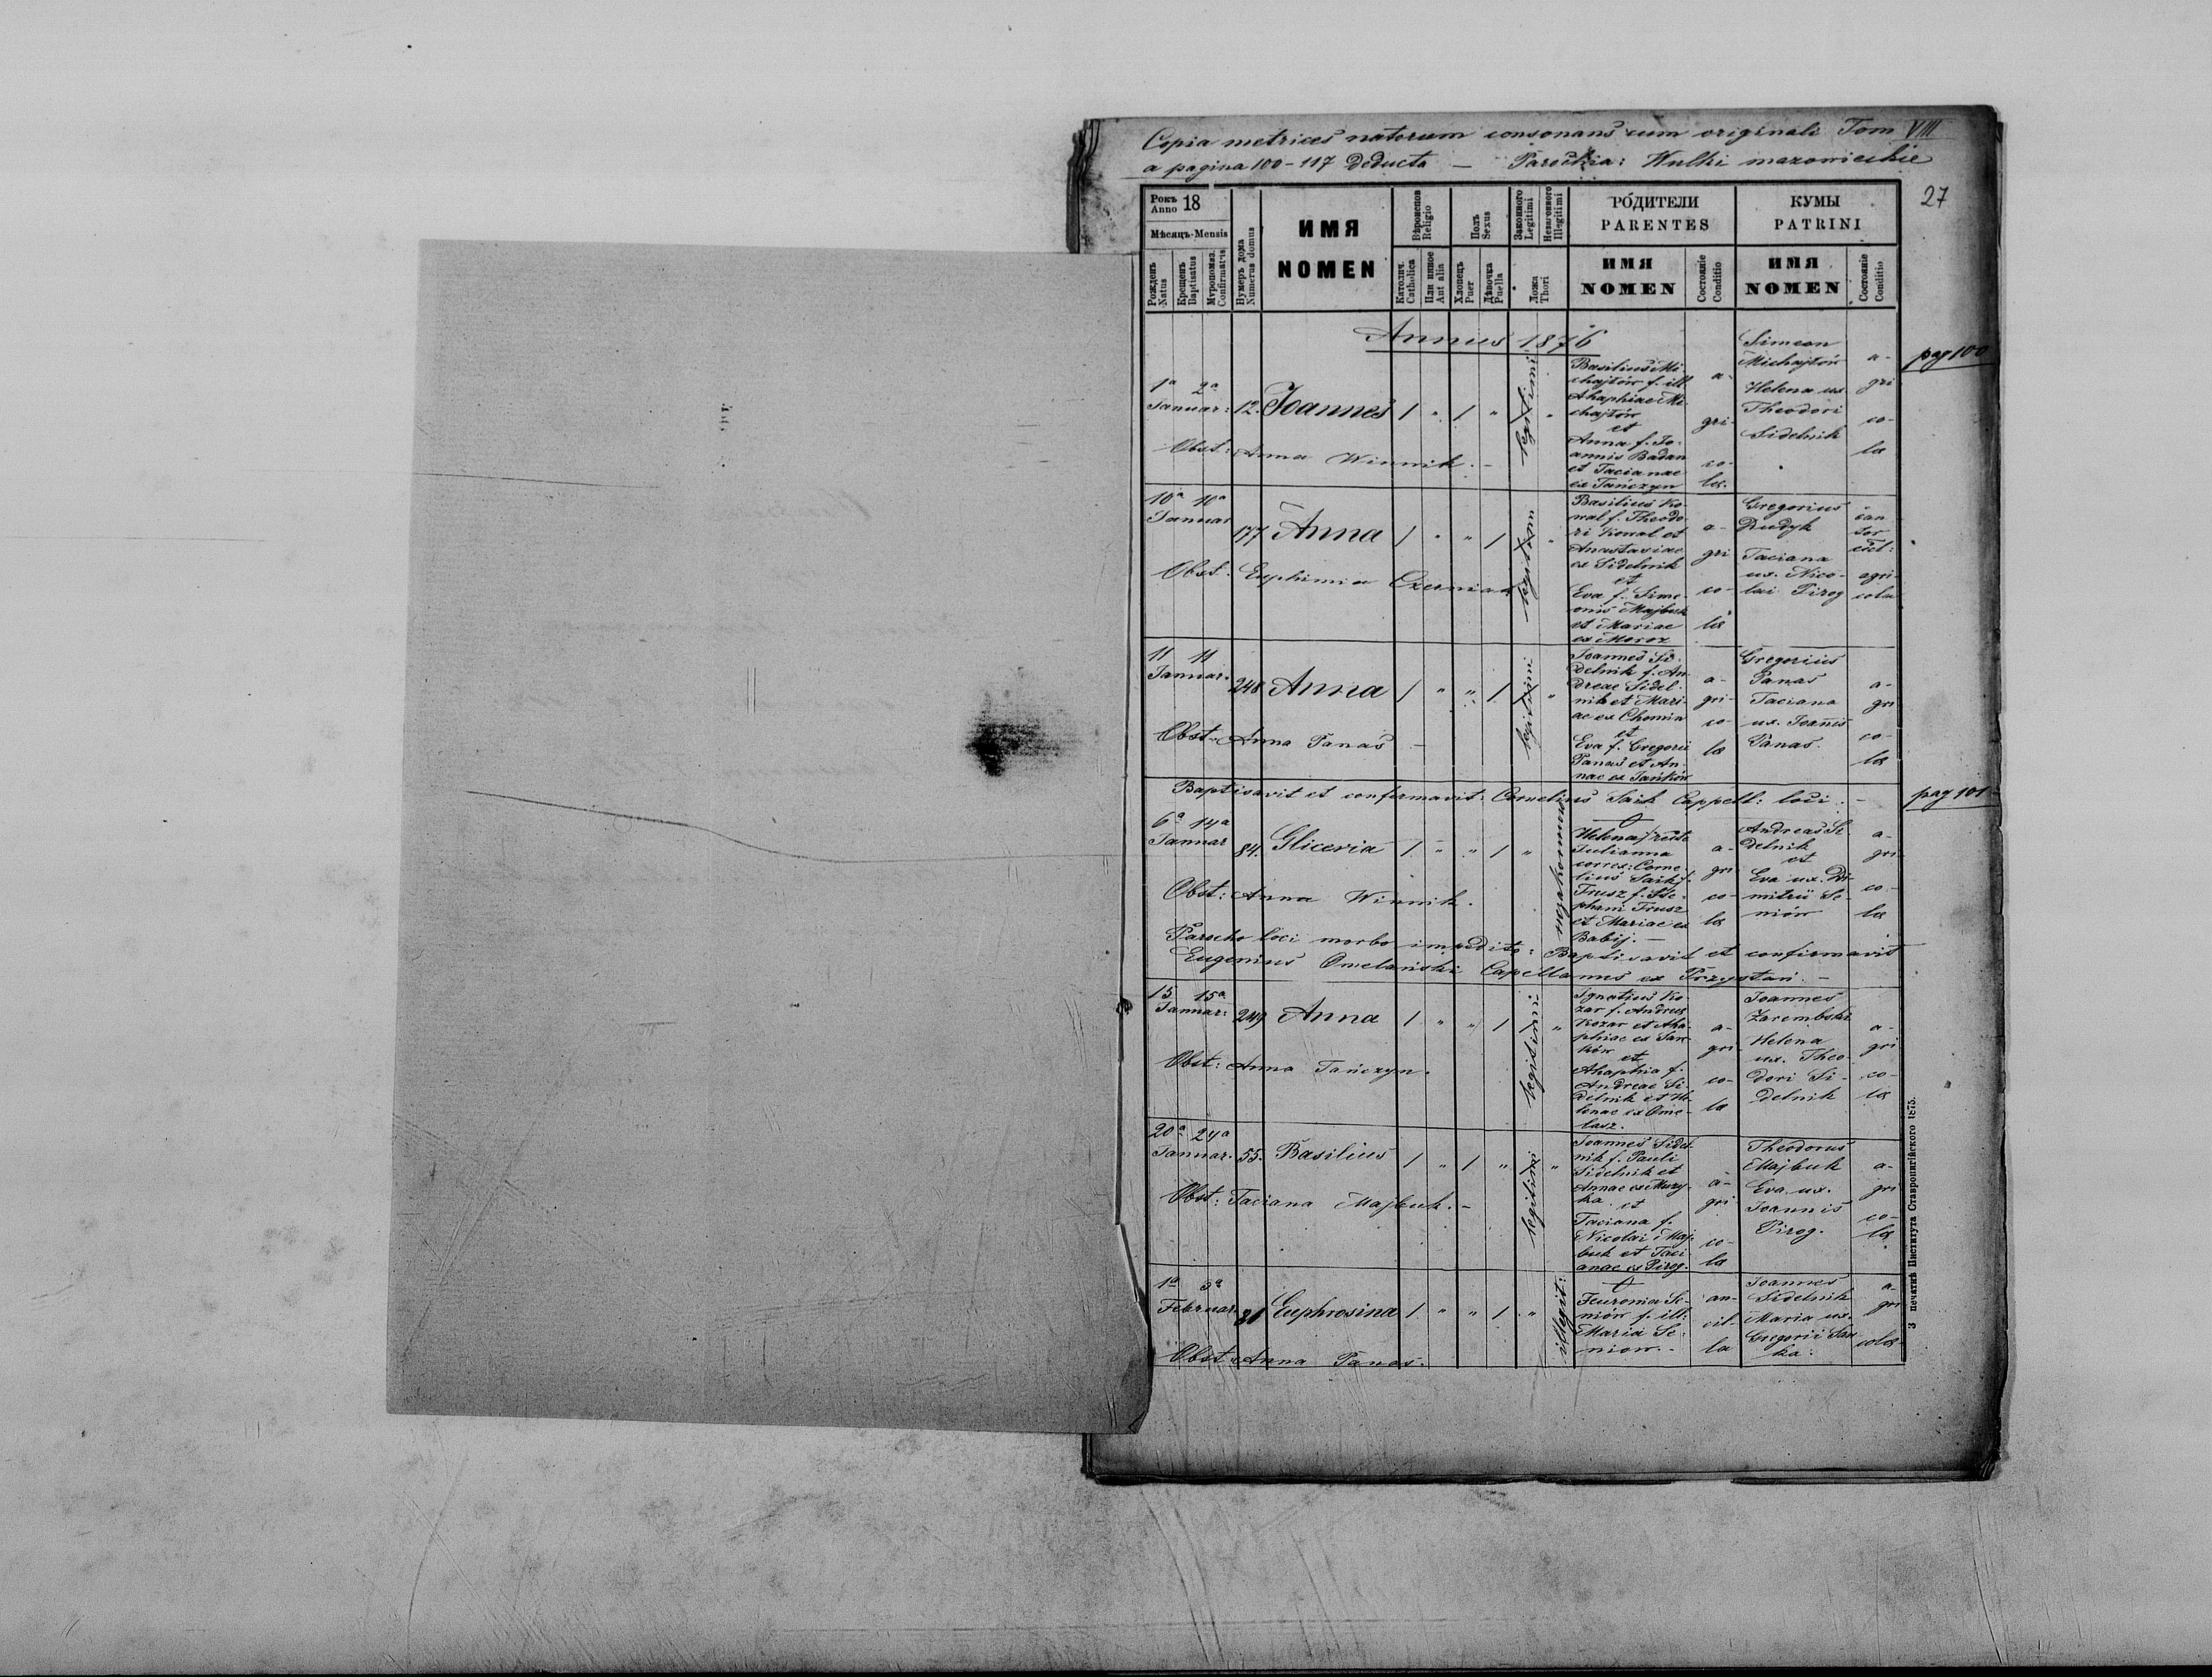 Copia metrices natorum consonans cum originali Tom VIII
a pagina 100-117 deducta — Parochia: Wulki mazowieckie
27
Рокъ Anno 18
Мѣсяцъ-Mensis
Рожденъ Natus
Крещенъ Baptisatus
Мvропомаз. Confirmatus
Нумеръ дома Numerus domus
ИМЯ
NOMEN
Вѣроисповѣд Religio
Католич. Catholica
Или инное Aut alia
Полъ Sexus
Хлопецъ Puer
Дѣвочка Puella
Законного Legitimi
Незаконного Illegitimi
Ложа Thori
РОДИТЕЛИ
PARENTES
ИМЯ
NOMEN
Состояніе Conditio
КУМЫ
PATRINI
ИМЯ
NOMEN
Состояніе Conditio
Annus 1876
pag 100
1a 2a
Januar: 12. Joannes 1 " 1 " legitimi "
Basilius Mi-
chajłów f. ill
Ahaphiae Mi-
chajłów
et
Anna f. Jo-
annis Badan
et Tacianae
ex Tańczyn
a-
gri-
co-
lae.
Simeon
Michajłów
Helena ux
Theodori
Sidelnik
a-
gri
co-
lae
Obst: Anna Winnik. -
10a 10a
Januar 177 Anna 1 " " 1 legitim "
Basilius Ko-
wal f. Theodo-
ri Kowal et
Anastasiae
ex Sidelnik
et
Eva f. Sime-
onis Majbuk
et Mariae
ex Moroz
a-
gri
co-
lae
Gregorius
Dudyk
Taciana
ux. Nico-
lai Pirog
can
tor
eccl:
agri-
colae
Obst. Euphimia Czerniak
11 11
Januar. 248 Anna 1 " " 1 legitimi "
Joannes Si-
delnik f. An-
dreae Sidel-
nik et Mari-
ae ex Chomin
et
Eva f. Gregorii
Panas et An-
nae ex Jańków
a-
gri-
co-
lae
Gregorius
Panas
Taciana
ux. Joannis
Panas.
a-
gri
co-
lae
Obst. Anna Panas -
Baptisavit et confirmavit: Cornelius Saik Cappell: loci. -
pag 101
6a 14a
Januar 84. Gliceria 1. " " 1 "
Helena/recte
Julianna
correx: Corne-
lius Saik/.
Trusz f. Ste-
phani Trusz
et Mariae ex
Babij. —
a-
gri-
co-
lae
Andreas Si-
delnik
et
Eva ux. Di-
mitrii Se-
niów
a-
gri-
co-
lae
Obst: Anna Winnik.
Parocho loci morbo impedito: Baptisavit et confirmavit
Eugenius Omelański Capellanus ex Przystań. -
15 15a
Januar: 249 Anna 1 " " 1 legitimi "
Ignatius Ko-
zar f. Andreae
Kozar et Aha-
phiae ex Jan-
ków
et
Ahaphia f.
Andreae Si-
delnik et He-
lenae ex Ome-
lasz.
a-
gri-
co-
lae
Joannes
Zarembski
Helena
ux. Theo-
dori Si-
delnik
a-
gri-
co-
lae
Obst: Anna Tańczyn.
20a 24a
Januar. 55. Basilius 1 " 1 " legitimi "
Joannes Sidel-
nik f. Pauli
Sidelnik et
Annae ex Muzy-
ka
et
Taciana f.
Nicolai Maj-
buk et Taci-
anae ex Pirog.
a-
gri
co-
lae
Theodorus
Majbuk
Eva ux.
Joannis
Pirog.
a-
gri
co-
lae
Obst: Taciana Majbuk. -
1a 3a
Februar. 31 Euphrosina 1 " " 1 " illegit:
Feuronia Se-
niów f. ill:
Maria Se-
niów. -
an-
cil-
la
Joannes
Sidelnik
Maria ux.
Gregorii San
ka.
a-
gri
colae
Obst Anna Panas.
З печатнѣ Института Ставропигійского 1875.